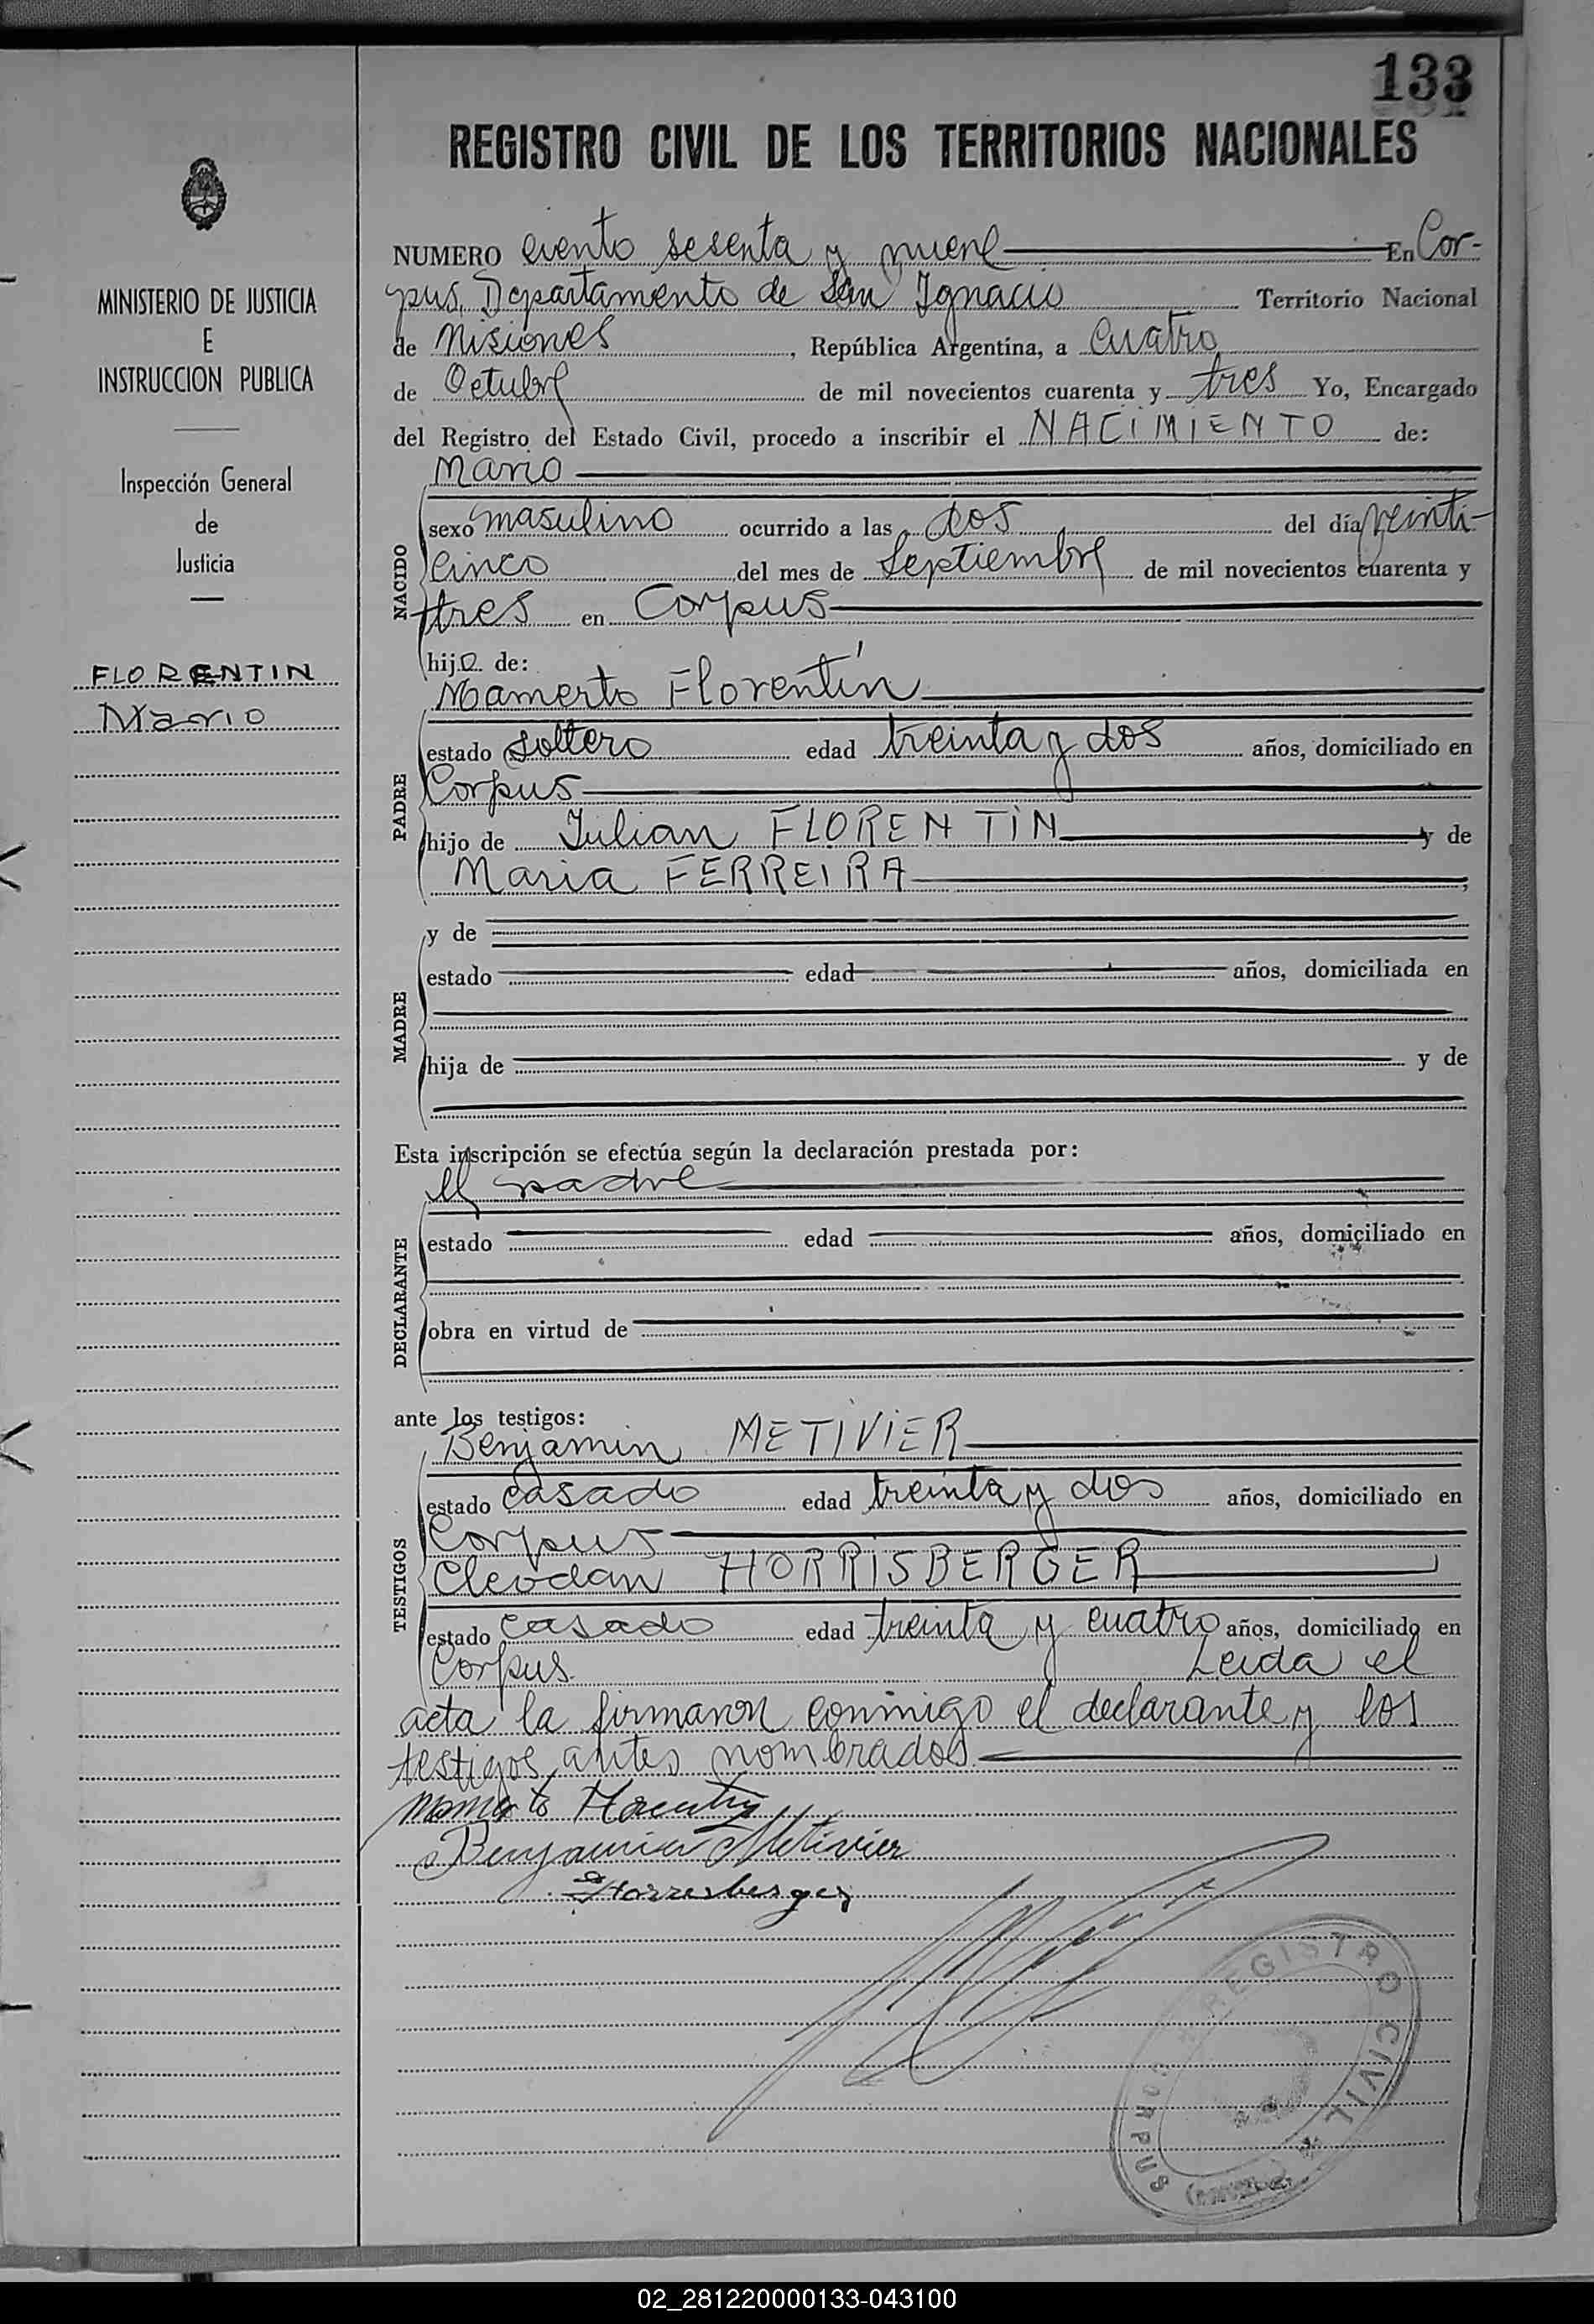 133
REGISTRO CIVIL DE LOS TERRITORIOS NACIONALES
MINISTERIO DE JUSTICIA
E
INSTRUCCION PUBLICA
Inspección General
de
Justicia
FLORENTIN
Mario
NUMERO ciento sesenta y nueve En Cor-
pus, Departamento de San Ignacio Territorio Nacional
de Misiones, República Argentina, a cuatro
de Octubre de mil novecientos cuarenta y tres Yo, Encargado
del Registro del Estado Civil, procedo a inscribir el NACIMIENTO de:
NACIDO
Mario
sexo masculino ocurrido a las dos del día veinti-
cinco del mes de Septiembre de mil novecientos cuarenta y
tres en Corpus
hijo de:
PADRE
Mamerto Florentín
estado soltero edad treinta y dos años, domiciliado en
Corpus
hijo de Julian FLORENTIN y de
Maria FERREIRA,
MADRE
y de
estado edad años, domiciliada en
hija de y de
Esta inscripción se efectúa según la declaración prestada por:
DECLARANTE
el padre
estado edad años, domiciliado en
obra en virtud de
ante los testigos:
TESTIGOS
Benjamin METIVIER
estado casado edad treinta y dos años, domiciliado en
Corpus
Cleodan HORRISBERGER
estado casado edad treinta y cuatro años, domiciliado en
Corpus. Leida el
acta la firmaron conmigo el declarante y los
testigos antes nombrados.
Mamerto Florentin
Benjamin Metivier
Horrisberger
REGISTRO CIVIL * CORPUS
02_281220000133-043100